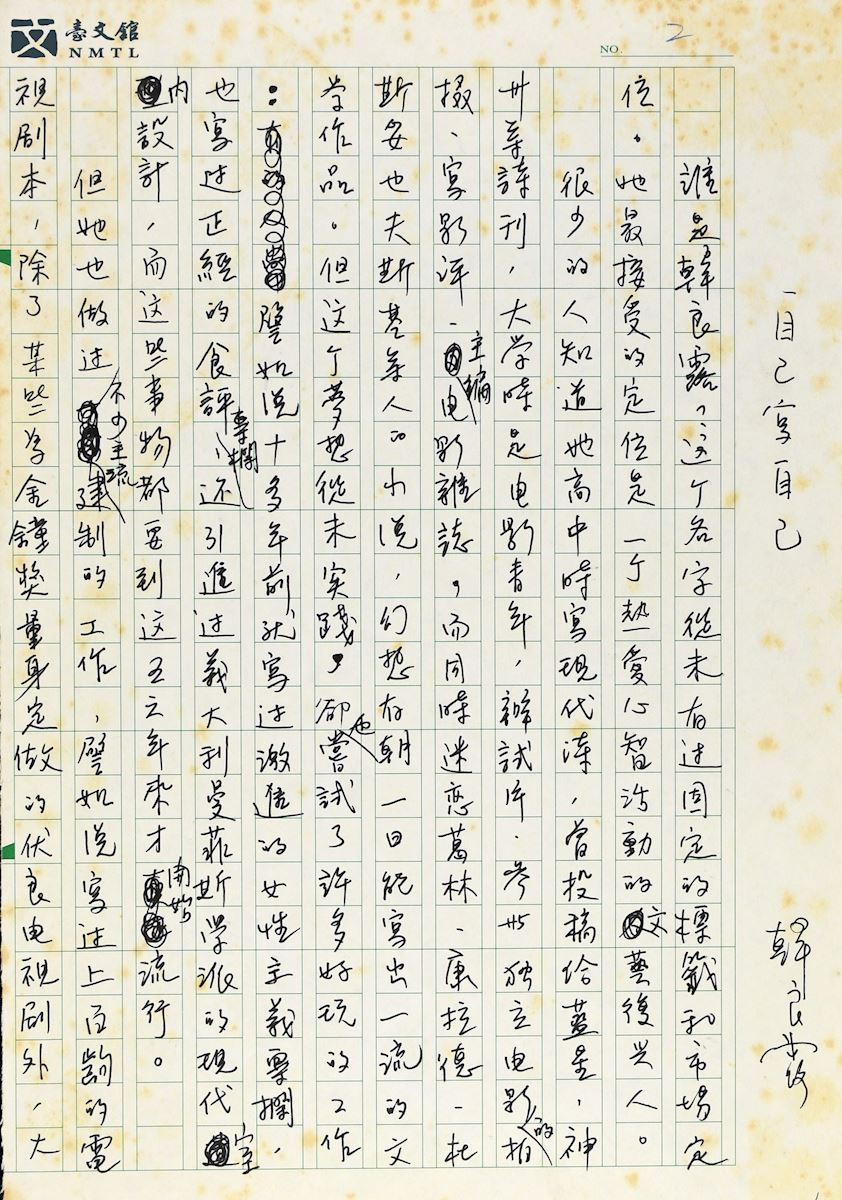 臺文館
NMTL
NO. 2
自己寫自己
韓良露
誰是韓良露?这个名字從未有过固定的標籤和市場定
位。她最接受的定位是一个熱愛心智活動的文藝復兴人。
很少的人知道她高中時寫現代诗,曾投稿给藍星,神
州等詩刊,大学時是电影青年,辦試片、参與獨立电影的拍
攝、寫影评、主編电影雜誌,而同時迷恋葛林、康拉德、杜
斯妥也夫斯基等人的小说,幻想有朝一日能寫出一流的文
学作品。但这个夢想從未实踐,卻也嘗試了許多好玩的工作
:譬如说十多年前就寫过激進的女性主義專欄,
也寫过正經的食評專欄,还引進过義大利曼菲斯学派的現代室
內設計,而这些事物都要到这五六年來才開始流行。
但她也做过不少主流建制的工作,譬如说寫过上百齣的電
視劇本,除了某些為金鐘獎量身定做的优良电視劇外,大